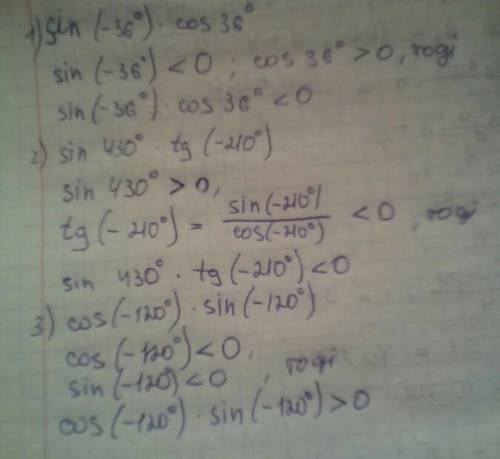 1) sin (-36°) · cos 36°
sin (-36°) < 0 ; cos 36° > 0, тоді
sin (-36°) · cos 36° < 0
2) sin 430° · tg (-210°)
sin 430° > 0,
tg (-210°) = sin(-210°) / cos(-210°) < 0, тоді
sin 430° · tg (-210°) < 0
3) cos (-120°) · sin (-120°)
cos (-120°) < 0,
sin (-120°) < 0, тоді
cos (-120°) · sin (-120°) > 0